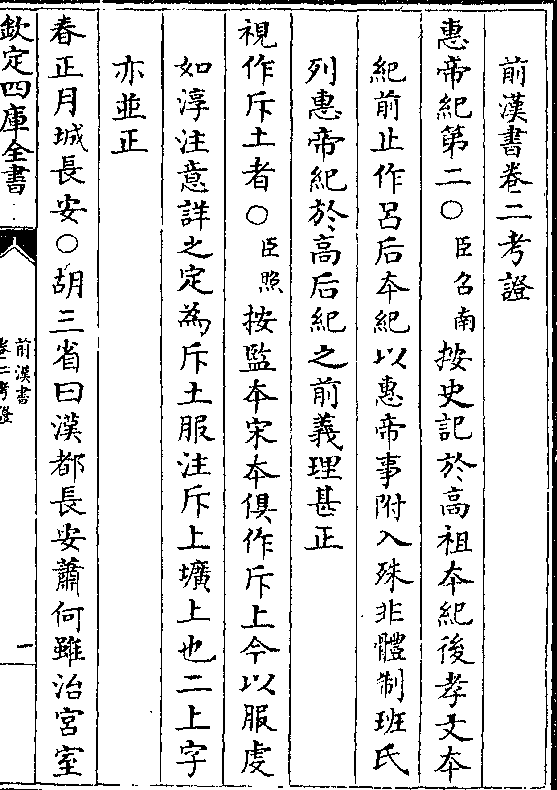 前漢書卷二考證
惠帝紀第二○臣召南按史記於高祖本紀後孝文本
紀前止作呂后本紀以惠帝事附入殊非體制班氏
列惠帝紀於高后紀之前義理甚正
視作斥土者○臣照按監本宋本俱作斥上今以服虔
如淳注意詳之定為斥土服注斥上壙上也二上字
亦並正
春正月城長安○胡三省曰漢都長安蕭何雖治宮室
欽定四庫全書
前漢書
卷二考證
一